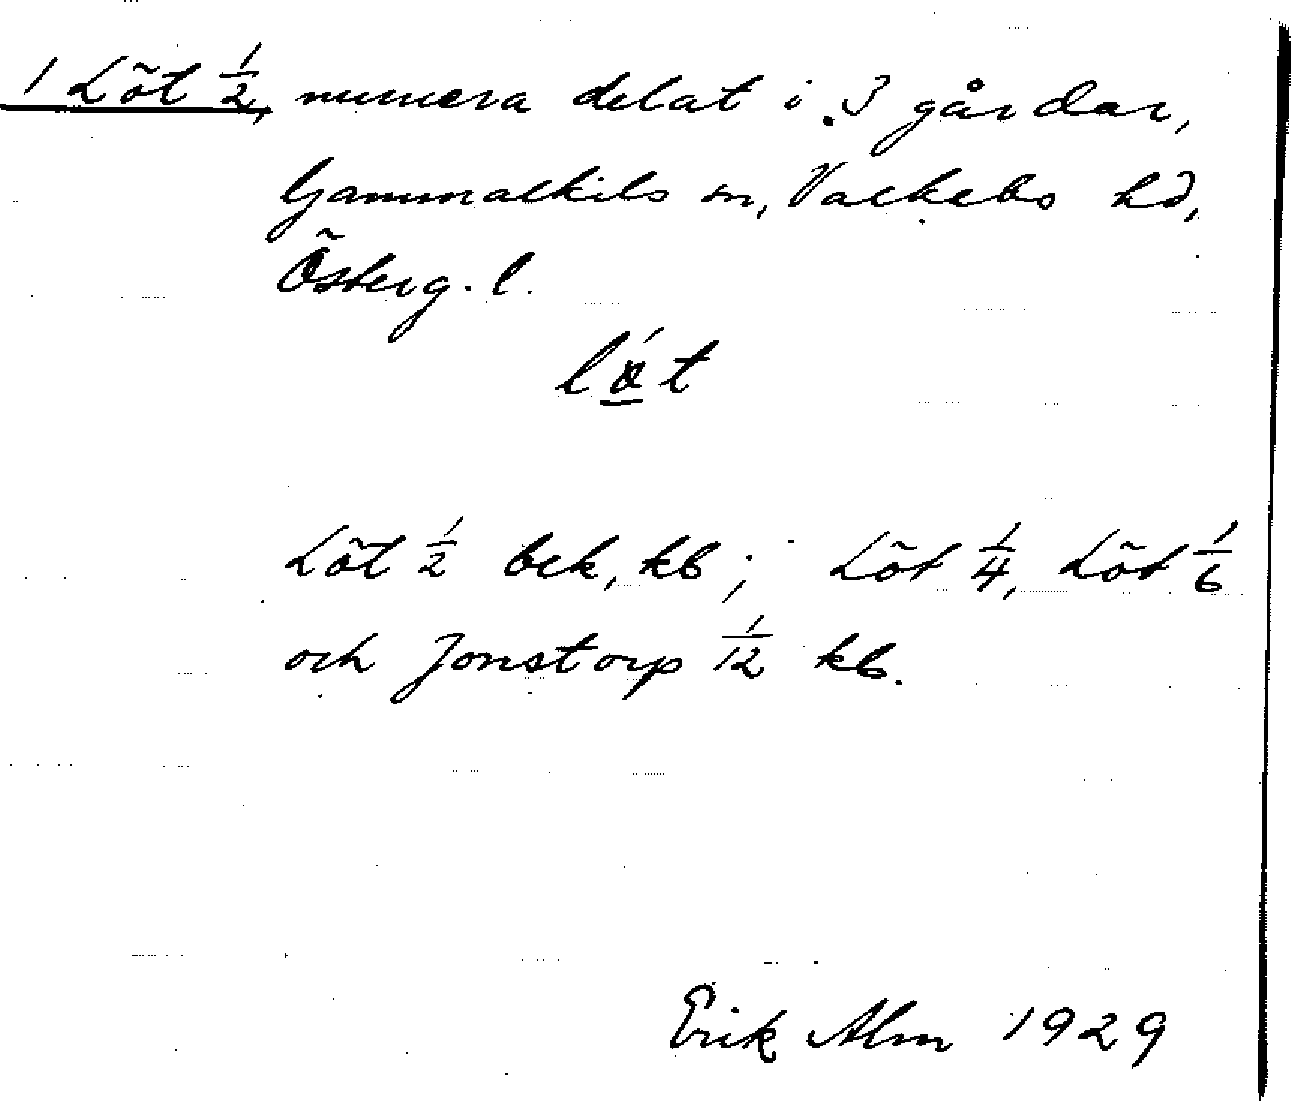 1 Löt 1/2, numera delat i 3 gårdar,
Gammalkils sn, Valkebo hd,
Österg. l.
lǿt
Löt 1/2 bek, kb; Löt 1/4, Löt 1/6
och Jonstorp 1/12 kb.
Erik Alm 1929